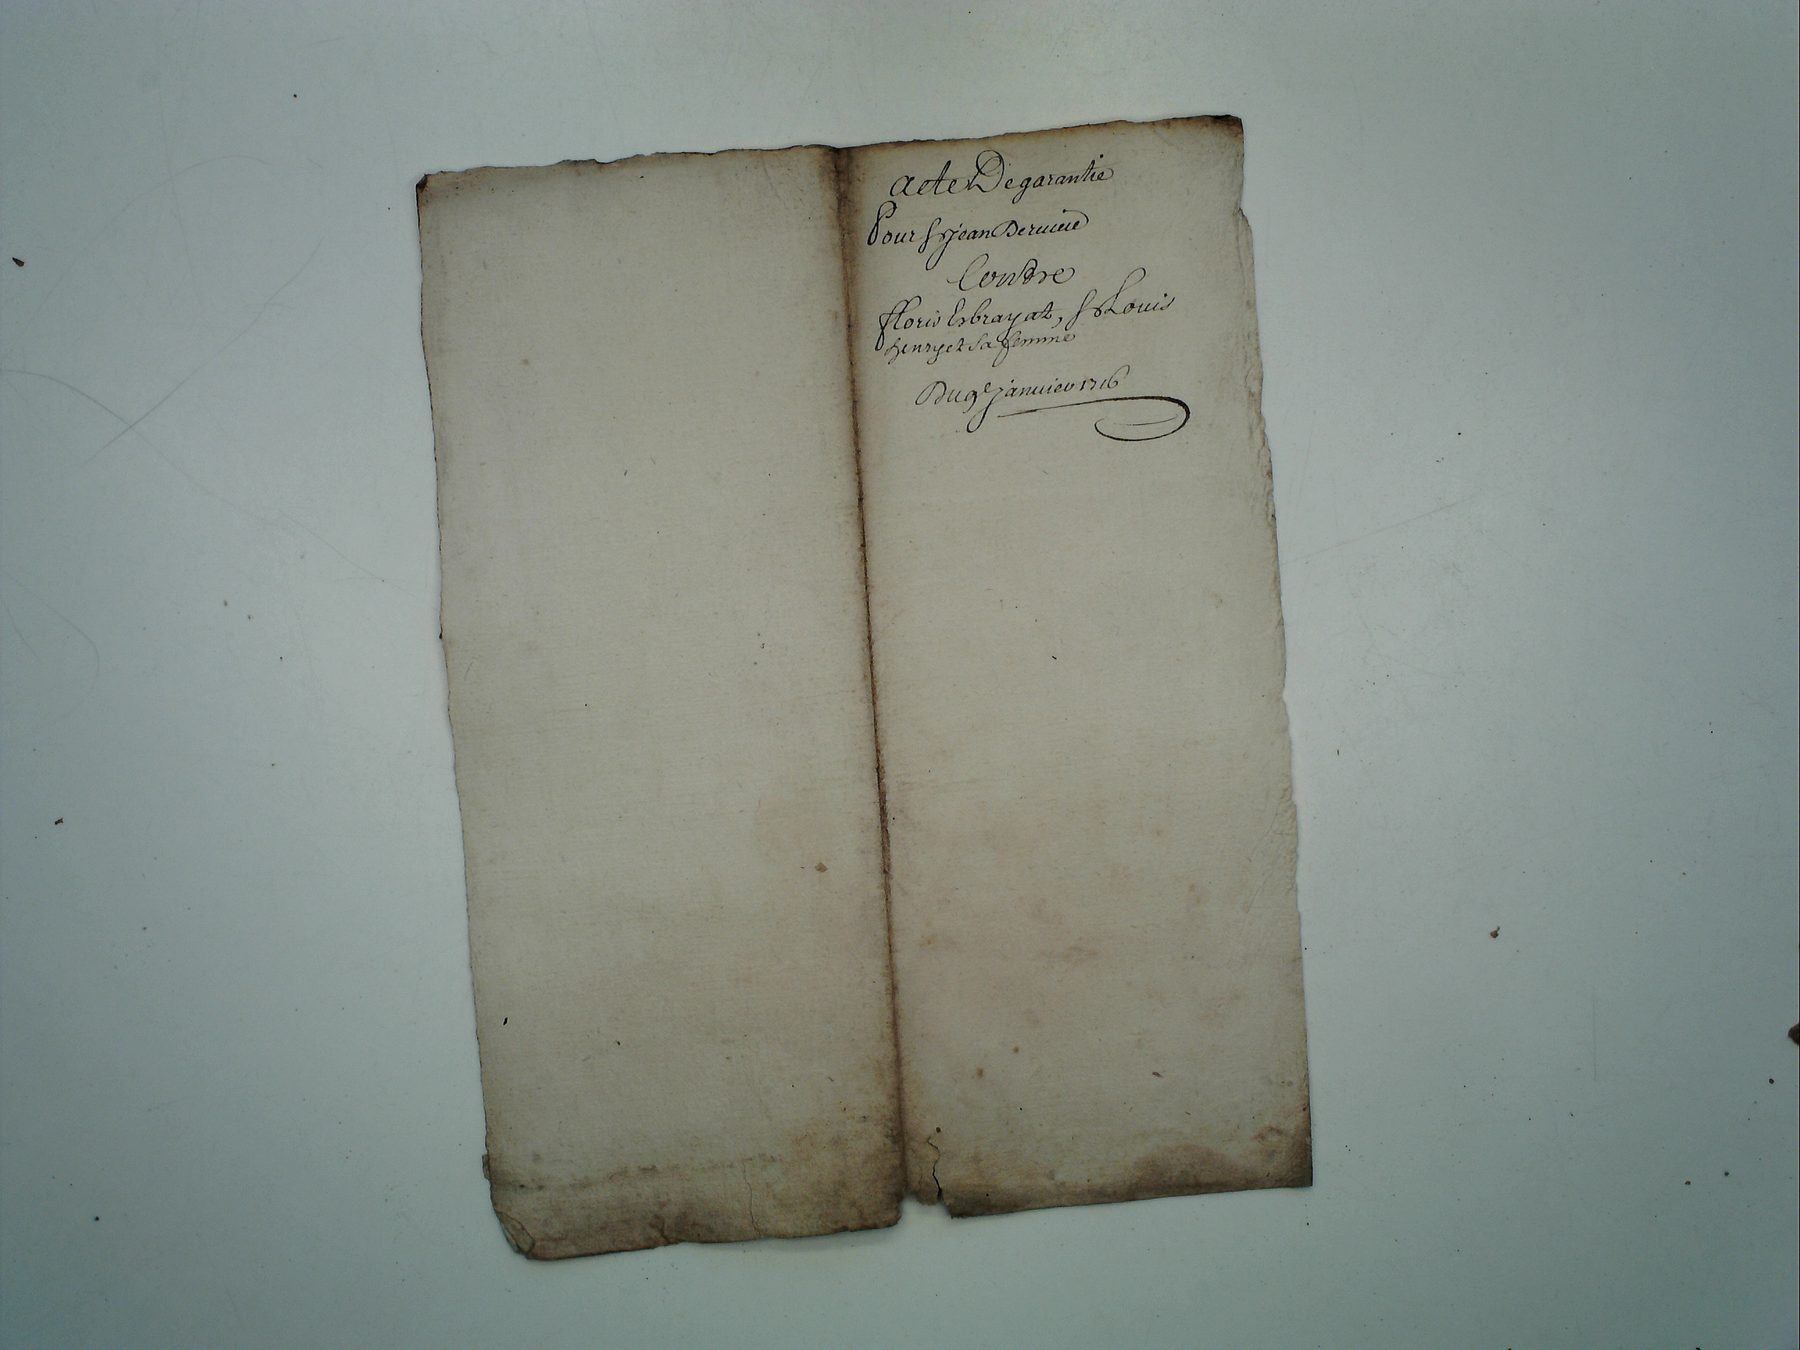 acte De garantie
Pour Sr jean Deruieie
Contre
floris Esbrayat, Sr Louis
henry et sa femme
Du 9e januier 1716